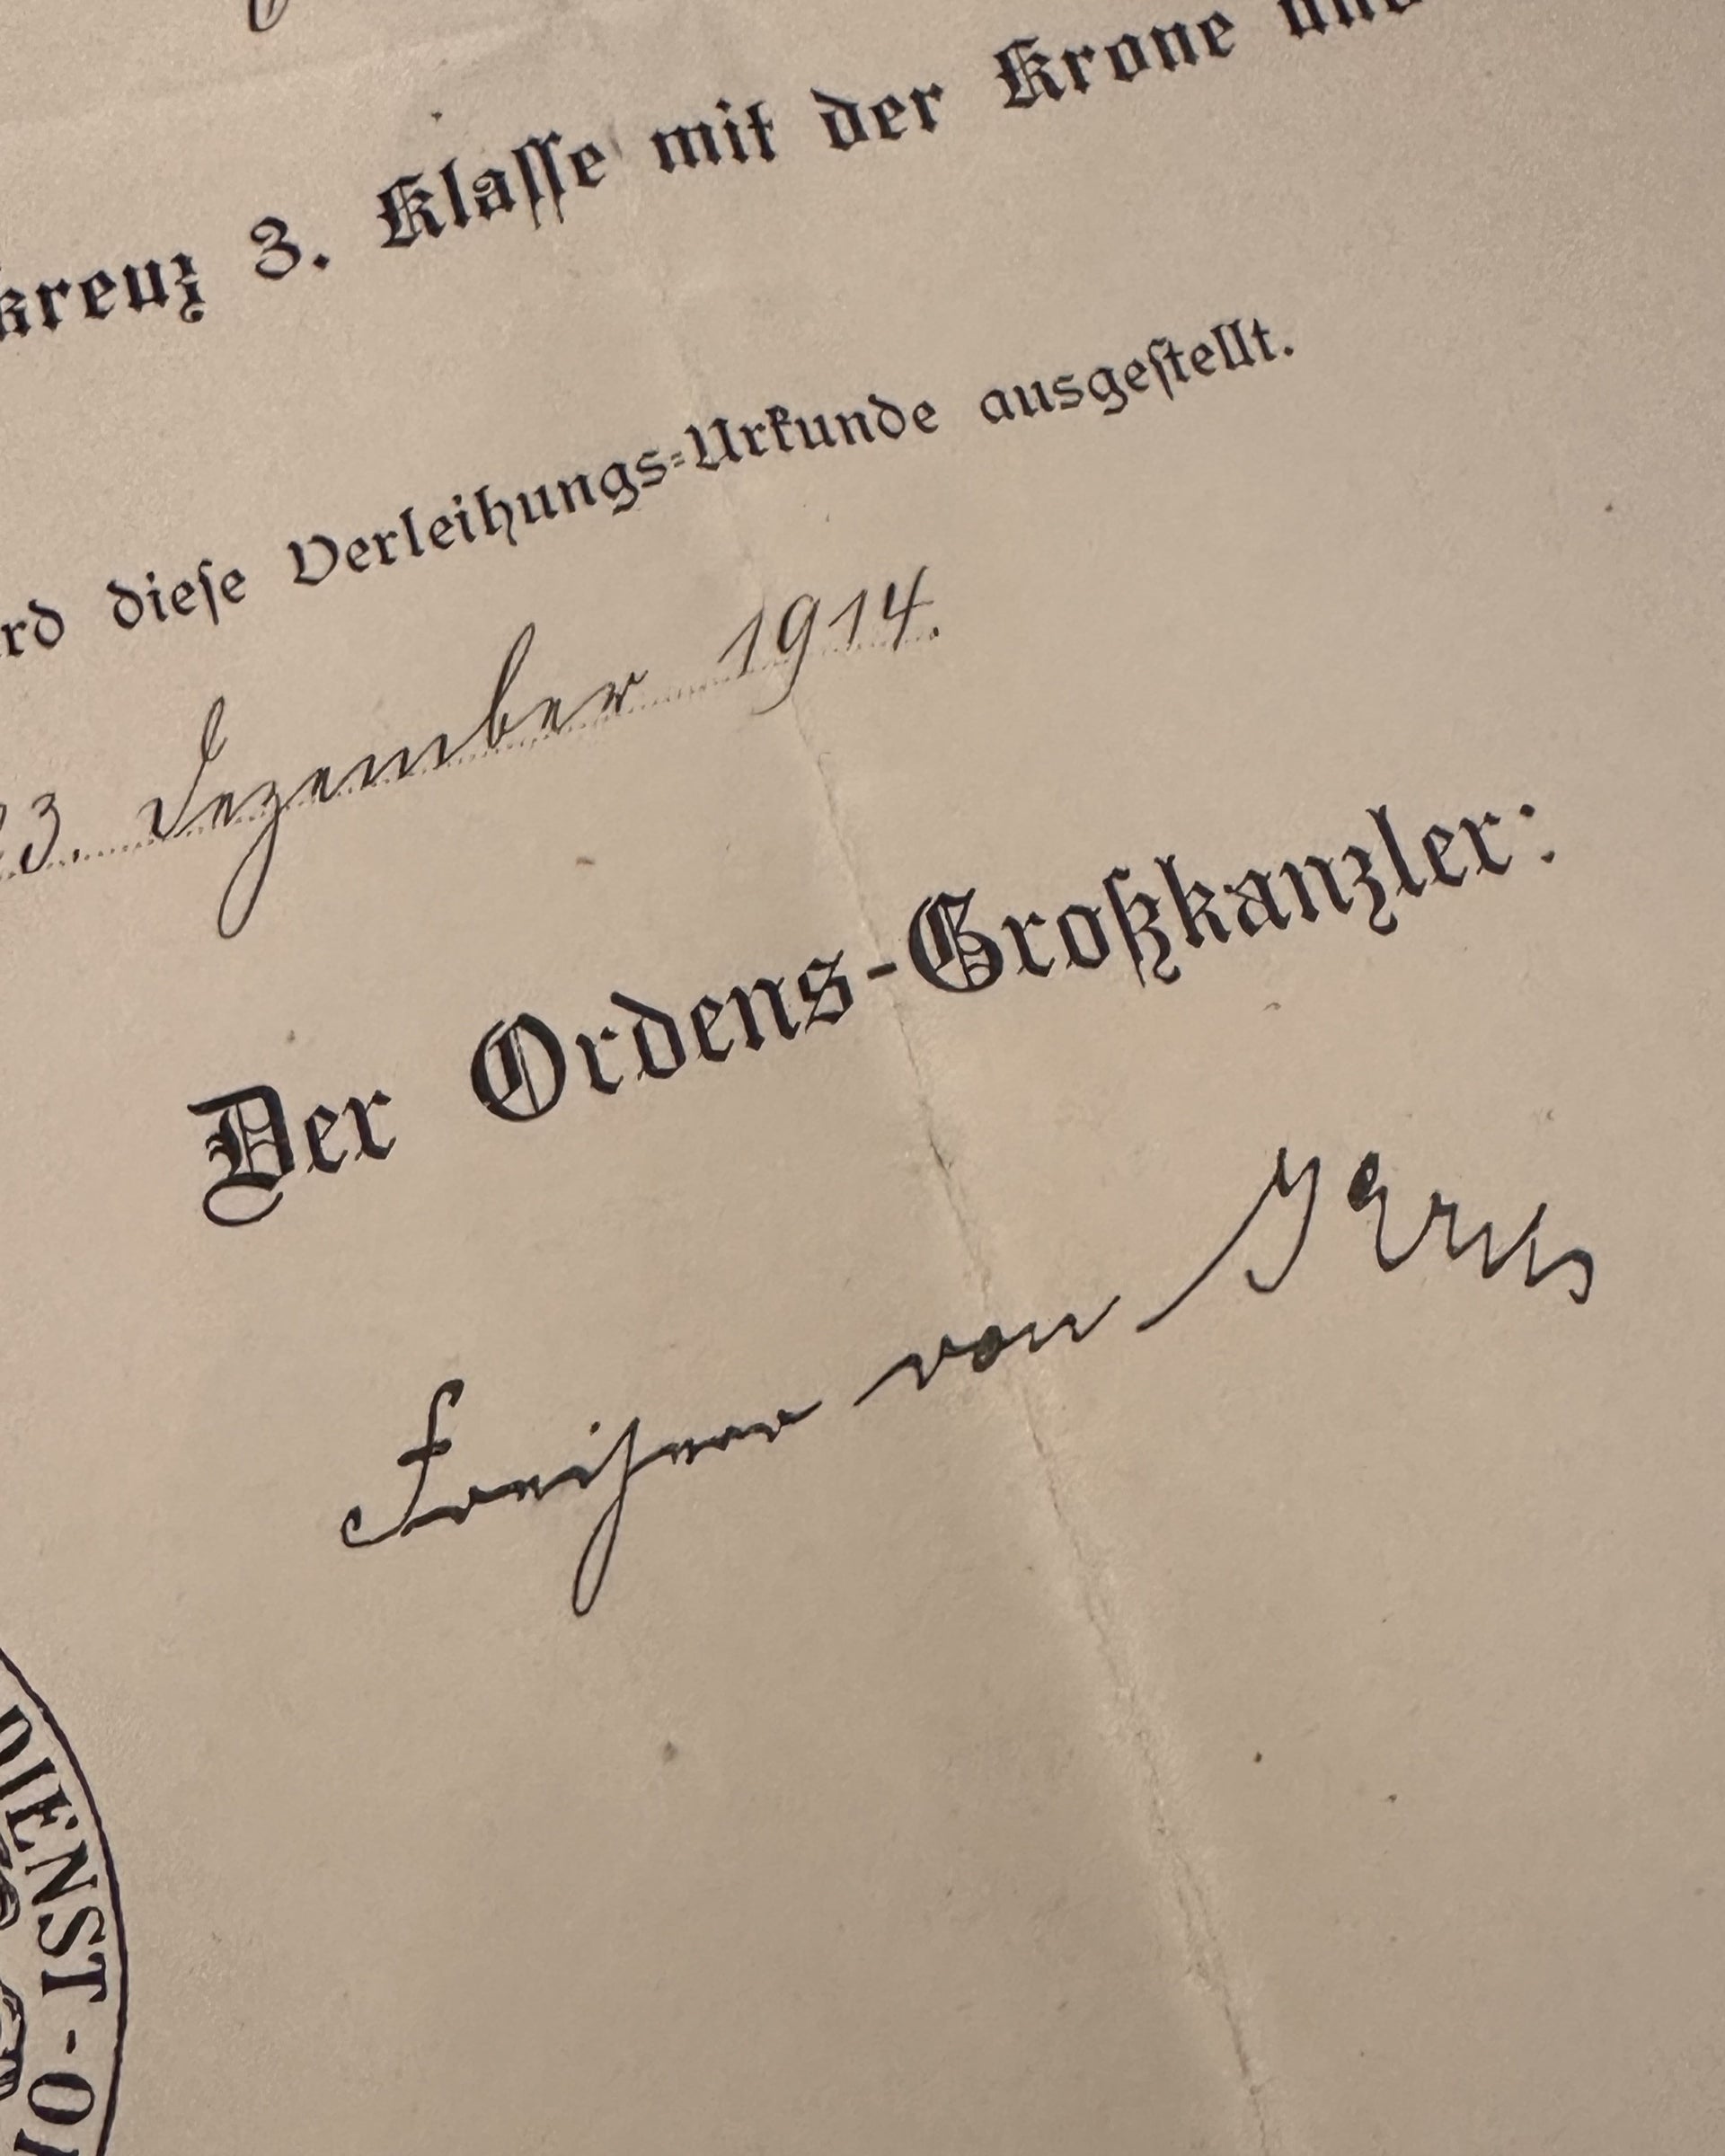 kreuz 3. Klaſſe mit der Krone und
rd dieſe Verleihungs-Urkunde ausgeſtellt.
23. Dezember 1914.
Der Ordens-Großkanzler:
Freiherr von
DIENST-O